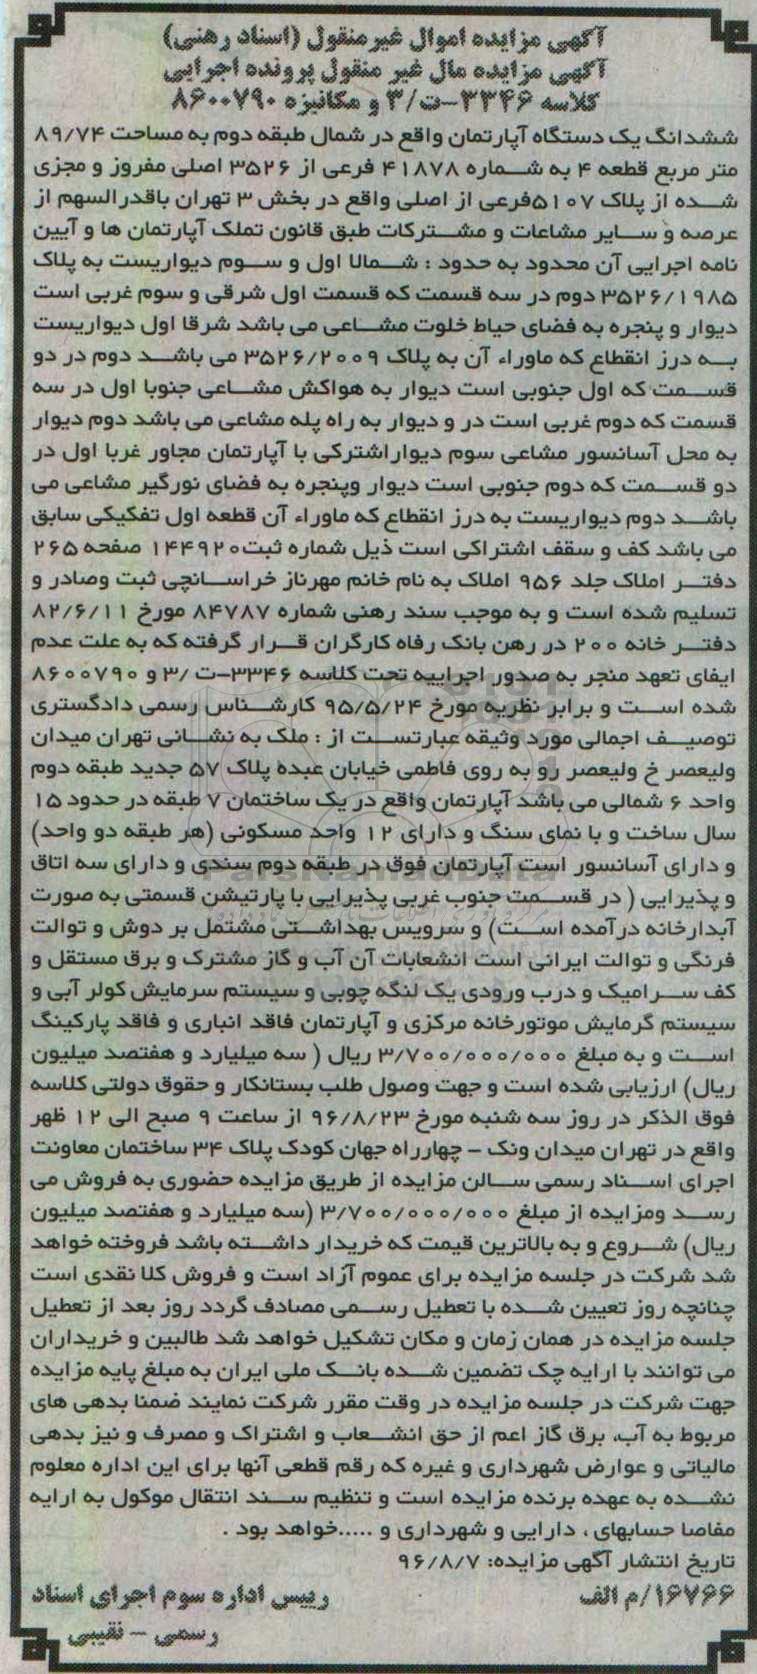 آگهی مزایده اموال غیرمنقول (اسناد رهنی)
آگهی مزایده مال غیر منقول پرونده اجرایی
کلاسه ۳۳۴۶-ت/۳ و مکانیزه ۸۶۰۰۷۹۰
ششدانگ یک دستگاه آپارتمان واقع در شمال طبقه دوم به مساحت ۸۹/۷۴
متر مربع قطعه ۴ به شماره ۴۱۸۷۸ فرعی از ۳۵۲۶ اصلی مفروز و مجزی
شده از پلاک ۵۱۰۷فرعی از اصلی واقع در بخش ۳ تهران باقدرالسهم از
عرصه و سایر مشاعات و مشترکات طبق قانون تملک آپارتمان ها و آیین
نامه اجرایی آن محدود به حدود : شمالا اول و سوم دیواریست به پلاک
۳۵۲۶/۱۹۸۵ دوم در سه قسمت که قسمت اول شرقی و سوم غربی است
دیوار و پنجره به فضای حیاط خلوت مشاعی می باشد شرقا اول دیواریست
به درز انقطاع که ماوراء آن به پلاک ۳۵۲۶/۲۰۰۹ می باشد دوم در دو
قسمت که اول جنوبی است دیوار به هواکش مشاعی جنوبا اول در سه
قسمت که دوم غربی است در و دیوار به راه پله مشاعی می باشد دوم دیوار
به محل آسانسور مشاعی سوم دیواراشترکی با آپارتمان مجاور غربا اول در
دو قسمت که دوم جنوبی است دیوار وپنجره به فضای نورگیر مشاعی می
باشد دوم دیواریست به درز انقطاع که ماوراء آن قطعه اول تفکیکی سابق
می باشد کف و سقف اشتراکی است ذیل شماره ثبت۱۴۴۹۲۰ صفحه ۲۶۵
دفتر املاک جلد ۹۵۶ املاک به نام خانم مهرناز خراسانچی ثبت وصادر و
تسلیم شده است و به موجب سند رهنی شماره ۸۴۷۸۷ مورخ ۸۲/۶/۱۱
دفتر خانه ۲۰۰ در رهن بانک رفاه کارگران قرار گرفته که به علت عدم
ایفای تعهد منجر به صدور اجراییه تحت کلاسه ۳۳۴۶-ت /۳ و ۸۶۰۰۷۹۰
شده است و برابر نظریه مورخ ۹۵/۵/۲۴ کارشناس رسمی دادگستری
توصیف اجمالی مورد وثیقه عبارتست از : ملک به نشانی تهران میدان
ولیعصر خ ولیعصر رو به روی فاطمی خیابان عبده پلاک ۵۷ جدید طبقه دوم
واحد ۶ شمالی می باشد آپارتمان واقع در یک ساختمان ۷ طبقه در حدود ۱۵
سال ساخت و با نمای سنگ و دارای ۱۲ واحد مسکونی (هر طبقه دو واحد)
و دارای آسانسور است آپارتمان فوق در طبقه دوم سندی و دارای سه اتاق
و پذیرایی ( در قسمت جنوب غربی پذیرایی با پارتیشن قسمتی به صورت
آبدارخانه درآمده است) و سرویس بهداشتی مشتمل بر دوش و توالت
فرنگی و توالت ایرانی است انشعابات آن آب و گاز مشترک و برق مستقل و
کف سرامیک و درب ورودی یک لنگه چوبی و سیستم سرمایش کولر آبی و
سیستم گرمایش موتورخانه مرکزی و آپارتمان فاقد انباری و فاقد پارکینگ
است و به مبلغ ۳/۷۰۰/۰۰۰/۰۰۰ ریال ( سه میلیارد و هفتصد میلیون
ریال) ارزیابی شده است و جهت وصول طلب بستانکار و حقوق دولتی کلاسه
فوق الذکر در روز سه شنبه مورخ ۹۶/۸/۲۳ از ساعت ۹ صبح الی ۱۲ ظهر
واقع در تهران میدان ونک – چهارراه جهان کودک پلاک ۳۴ ساختمان معاونت
اجرای اسناد رسمی سالن مزایده از طریق مزایده حضوری به فروش می
رسد ومزایده از مبلغ ۳/۷۰۰/۰۰۰/۰۰۰ (سه میلیارد و هفتصد میلیون
ریال) شروع و به بالاترین قیمت که خریدار داشته باشد فروخته خواهد
شد شرکت در جلسه مزایده برای عموم آزاد است و فروش کلا نقدی است
چنانچه روز تعیین شده با تعطیل رسمی مصادف گردد روز بعد از تعطیل
جلسه مزایده در همان زمان و مکان تشکیل خواهد شد طالبین و خریداران
می توانند با ارایه چک تضمین شده بانک ملی ایران به مبلغ پایه مزایده
جهت شرکت در جلسه مزایده در وقت مقرر شرکت نمایند ضمنا بدهی های
مربوط به آب، برق گاز اعم از حق انشعاب و اشتراک و مصرف و نیز بدهی
مالیاتی و عوارض شهرداری و غیره که رقم قطعی آنها برای این اداره معلوم
نشده به عهده برنده مزایده است و تنظیم سند انتقال موکول به ارایه
مفاصا حسابهای ، دارایی و شهرداری و .....خواهد بود .
تاریخ انتشار آگهی مزایده: ۹۶/۸/۷
۱۶۷۶۶/م الف
رییس اداره سوم اجرای اسناد
رسمی – نقیبی